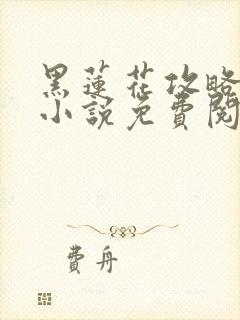 黑蓮花攻略
小說免費閱
費舟